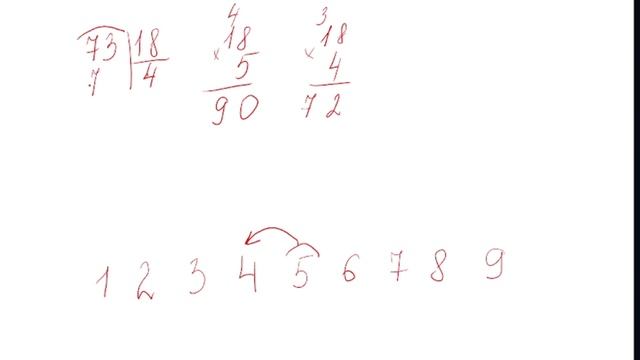 4 3
73 18 18 18
7 4 × 5 × 4
90 72
1 2 3 4 5 6 7 8 9